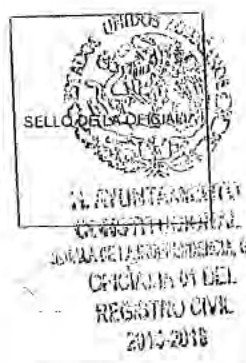 ESTADOS UNIDOS MEXICANOS
SELLO DE LA OFICIALIA
H. AYUNTAMIENTO
CONSTITUCIONAL
OFICIALIA 01 DEL
REGISTRO CIVIL
2016-2018